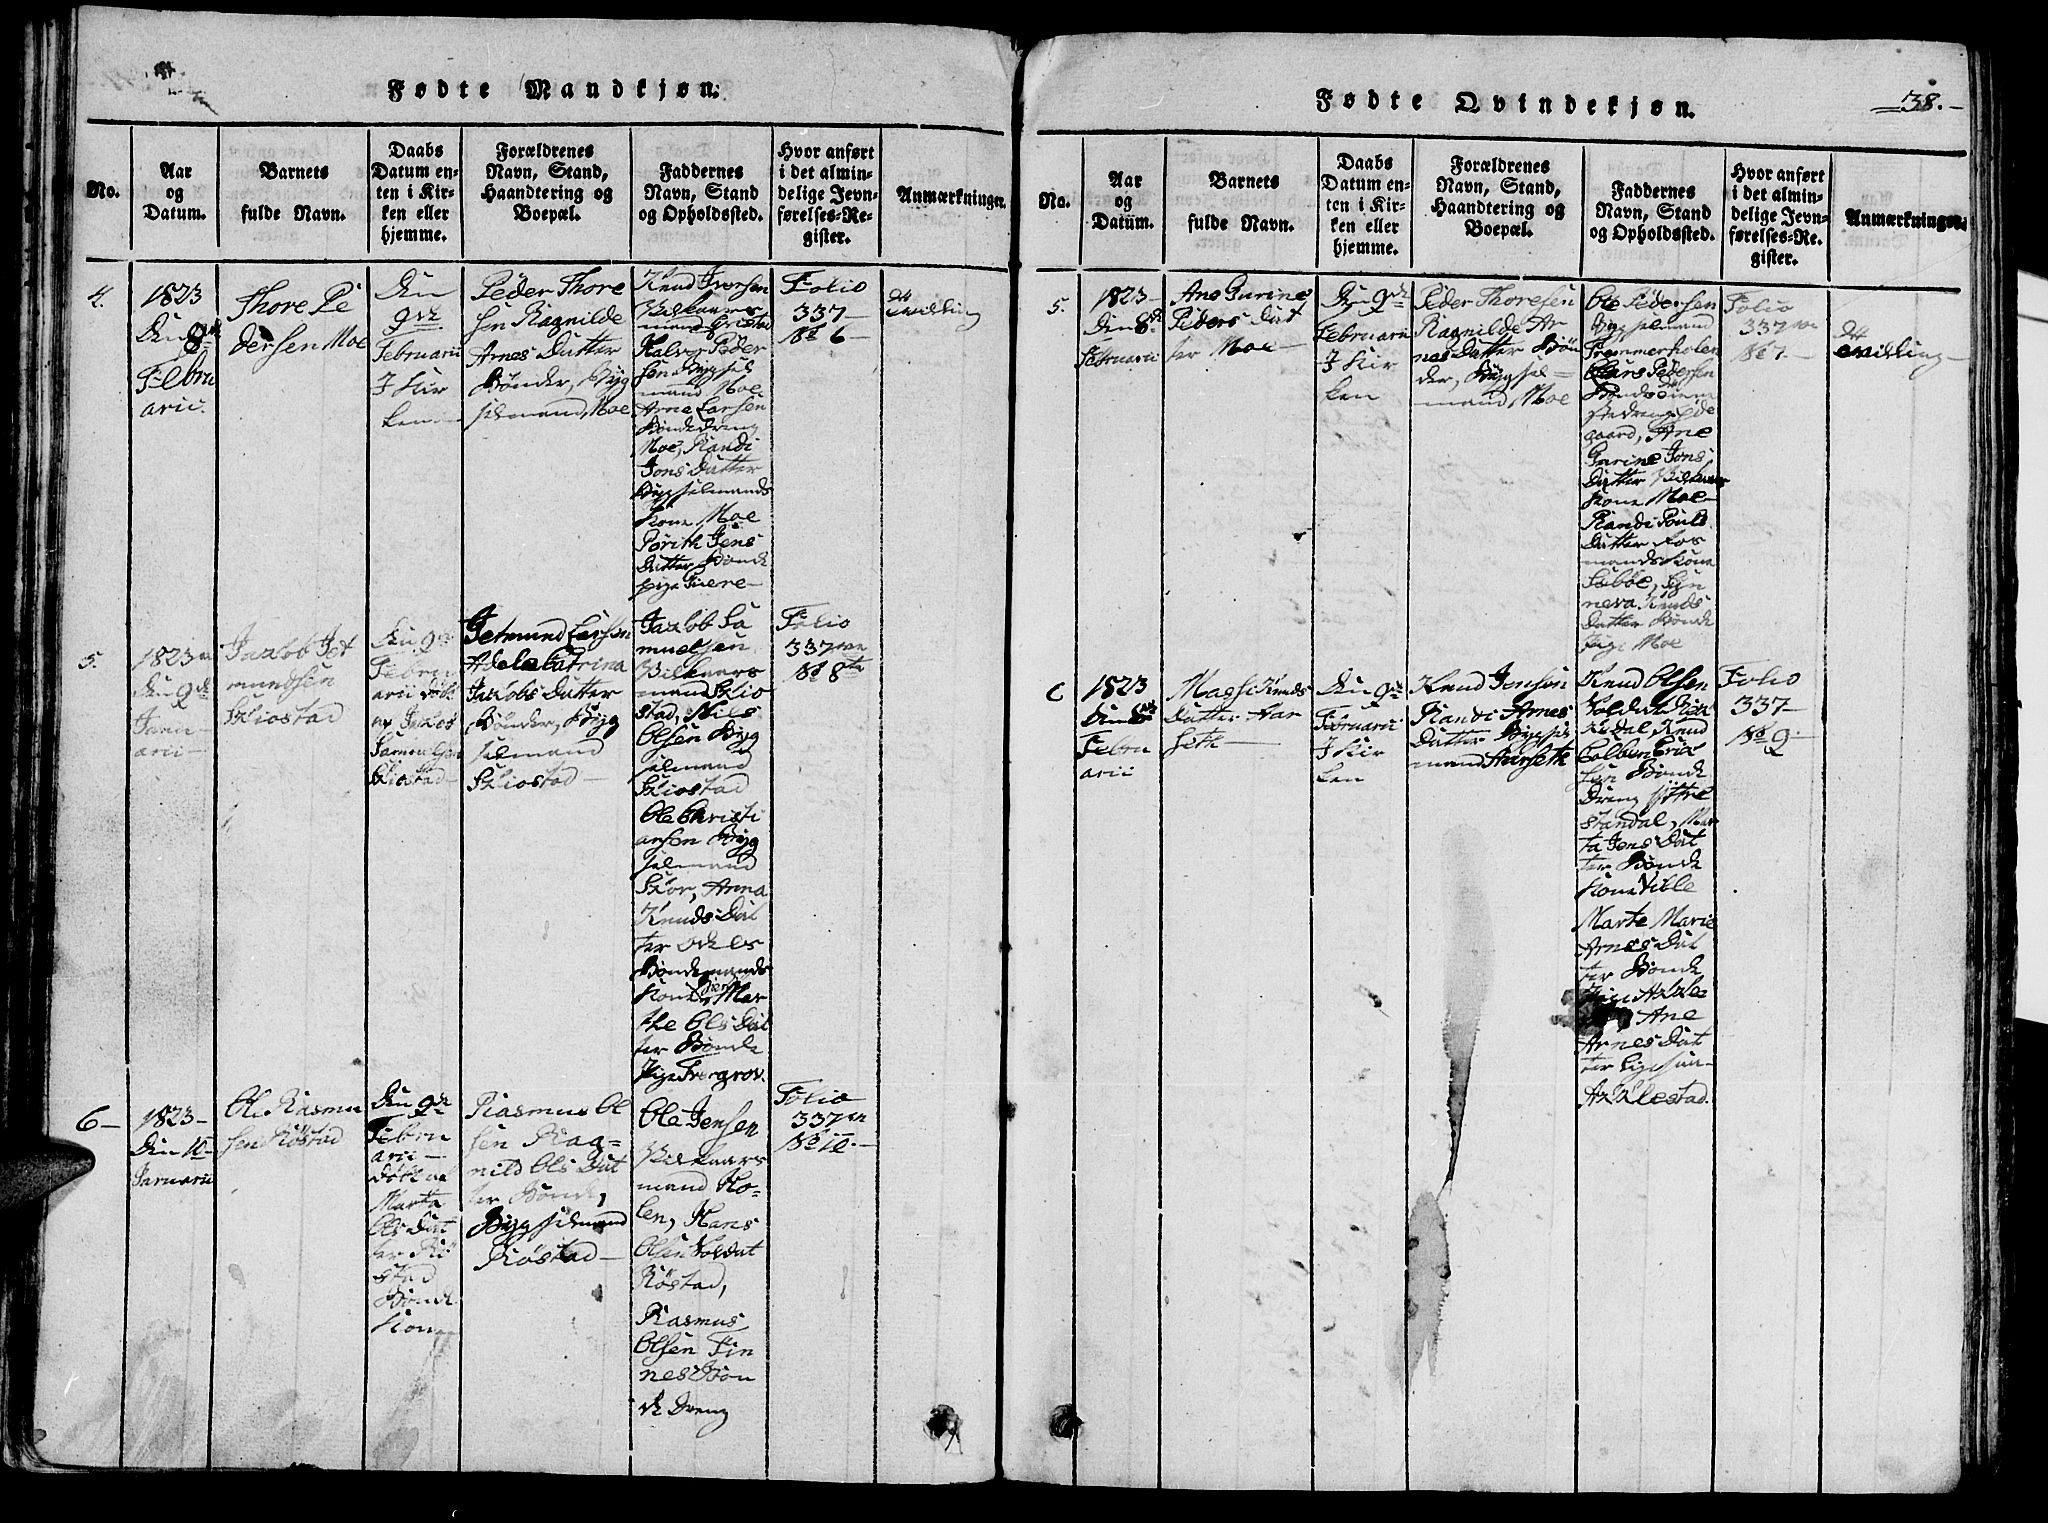 Fødte Mandkjøn.
No.
Aar
og
Datum.
Barnets
fulde Navn.
Daabs
Datum en-
ten i Kir-
ken eller
hjemme.
Forældrenes
Navn, Stand,
Haandtering og
Boepæl.
Faddernes
Navn, Stand
og Opholdssted.
Hvor anført
i det almin-
delige Jevn-
førelses-Re-
gister.
Anmærkninger.
4.
1823
Den 8de
Febru
arii.
Thore Pe
dersen Moe
Den
9de
Februarii
I Kir
ken
Peder Thore
sen Ragnilde
Arnes Datter
Bønder, Byg
selmand, Moe
Knud Iversen
Vilkaars
mand
Peder
sen Bygsel
mand Moe
Arne Larsen
Bondedreng
Moe, Randi
Jons Datter
Bygselmands
Kone Moe
Jens
Datter Bonde
pige
Folio
337
No 6
Tvilling
5.
1823
Den 9de
Janu
arii
Jakob Jet
mundsen
Skiostad
Den 9de
Febru
arii døbt
av Jakob
Samuelsen
Skiostad
Jetmund Larsen
Adel Catrina
Jakobs Datter
Bønder, Byg
selmand
Skiostad
Jakob Sa
muelsen
Vilkaars
mand Skio
stad, Nils
Olsen Byg
selmand
Skiostad
Ole Christi
ansen Byg
selmand
Skor, Anna
Knuds Dat
ter
Bondemands
Kone Mar
the Ols Dat
ter Bonde
Pige
Folio
337
No 8
6
1823
Den 10
Januarii
Ole Rasmu
sen Røstad
Den 9de
Febru
arii
døbt af
Marta
Ols Dat
ter Rø
stad
Bonde
Kone
Rasmus Ol
sen Rag=
nild Ols Dat
ter Bønder,
Bygselmand
Røstad
Ole Jensen
Vilkaars
mand Ko-
len, Hans
Olsen Soldat
Røstad,
Rasmus
Olsen Fin
nes Bon
de Dreng
Folio
337
No 10.
Fødte Qvindekjøn.
38.
No.
Aar
og
Datum.
Barnets
fulde Navn.
Daabs
Datum en-
ten i Kir-
ken eller
hjemme.
Forældrenes
Navn, Stand,
Haandtering og
Boepæl.
Faddernes
Navn, Stand
og Opholdssted.
Hvor anført
i det almin-
delige Jevn-
førelses-Re-
gister.
Anmærkninger.
5.
1823
Den 8de
Februarii
Ane Gurine
Peders Dat
ter Moe
Den 9de
Februarii
I Kir
ken
Peder Thoresen
Ragnilde Ar
nes Datter Bøn
der, Bygsel
mand, Moe
Ole Pedersen
Bygselmand
Hans Pedersen
gaard, Ane
Gurine Jons
Datter Vilkaars
Kone Moe
Randi Pouls
Datter Hos
mands Kone
Sæbøe, Syn
neva Knuds
Datter Bonde
Pige Moe
Folio
337
No 7.
Tvilling
6
1823
Den 8de
Febru
arii
Massi Knuds
Datter Aar
seth
Den 9de
Februarii
I Kir
ken
Knud Jensen
Randi Arnes
Datter Bygsel
mand Aarseth
Knud Olsen
Soldat
Knud
Colben Eric
sen Bonde
Dreng Yttre
standal, Mar
ta Jens Dat
ter Bonde
Kone Ville
Marte Marie
Arnes Dat
ter Bonde
Pige
Ane
Arnes Dat
ter
Akslestad.
Folio
337
No 9